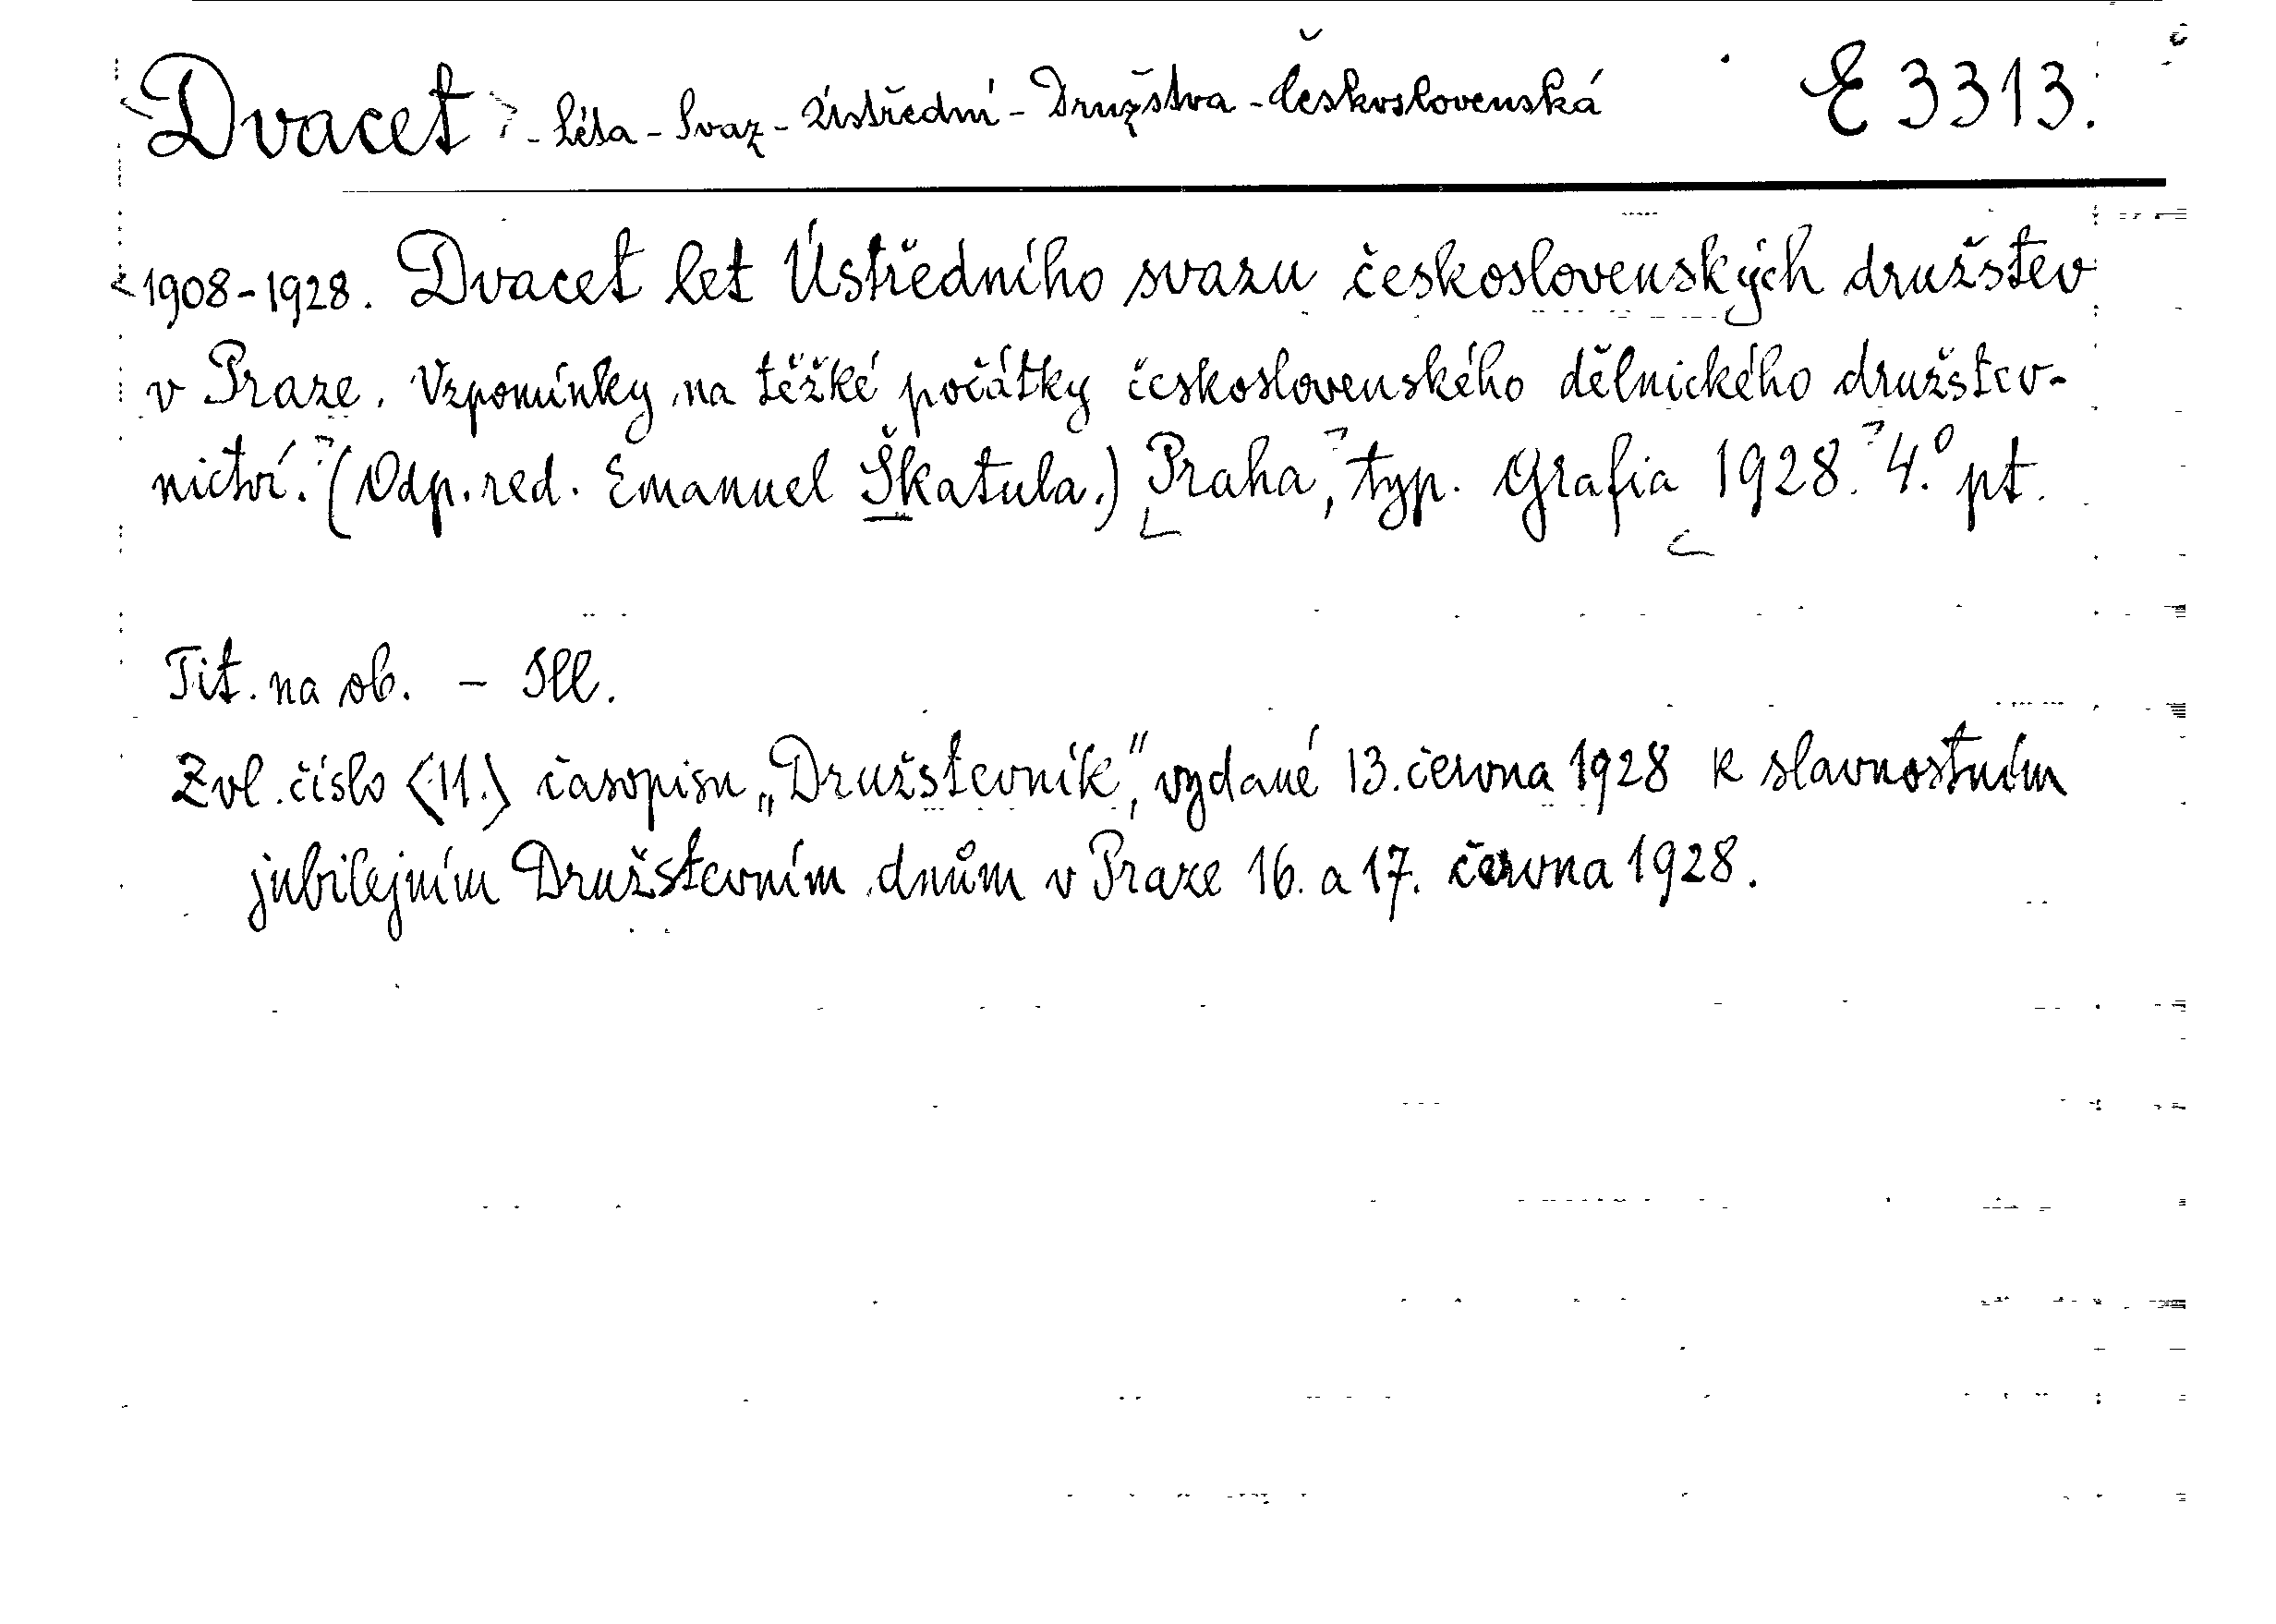 Dvacet - Léta - Svaz - Ústřední - Družstva - Československá E 3313.
1908-1928. Dvacet let Ústředního svazu československých družstev
v Praze. Vzpomínky na těžké počátky československého dělnického družstev-
nictví. (Odp. red. Emanuel Škatula.) Praha, typ. Grafia 1928. 4.° pt.
Tit. na ob. - Ill.
Zvl. číslo <11.> časopisu „Družstevník", vydané 13. června 1928 k slavnostním
jubilejním Družstevním dnům v Praze 16. a 17. června 1928.